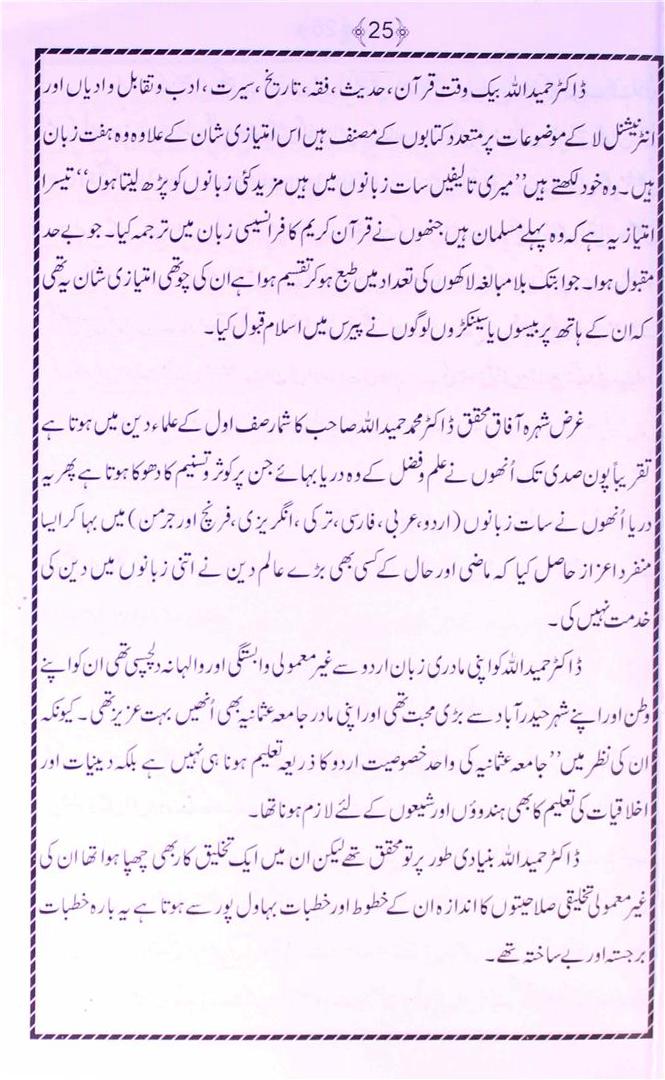 25
ڈاکٹر حمید اللہ بیک وقت قرآن، حدیث، فقہ، تاریخ، سیرت، ادب و تقابل و ادیاں اور
انٹرنیشنل لا کے موضوعات پر متعدد کتابوں کے مصنف ہیں اس امتیازی شان کے علاوہ وہ ہفت زبان
ہیں۔ وہ خود لکھتے ہیں ”میری تالیفیں سات زبانوں میں ہیں مزید کئی زبانوں کو پڑھ لیتا ہوں“ تیسرا
امتیاز یہ ہے کہ وہ پہلے مسلمان ہیں جنھوں نے قرآن کریم کا فرانسیسی زبان میں ترجمہ کیا۔ جو بے حد
مقبول ہوا۔ جو ابتک بلا مبالغہ لاکھوں کی تعداد میں طبع ہو کر تقسیم ہوا ہے ان کی چوتھی امتیازی شان یہ تھی
کہ ان کے ہاتھ پر بیسوں یا سینکڑوں لوگوں نے پیرس میں اسلام قبول کیا۔
غرض شہرہ آفاق محقق ڈاکٹر محمد حمید اللہ صاحب کا شمار صف اول کے علماء دین میں ہوتا ہے
تقریباً پون صدی تک اُنھوں نے علم و فضل کے وہ دریا بہائے جن پر کوثر و تسنیم کا دھوکا ہوتا ہے پھر یہ
دریا اُنھوں نے سات زبانوں (اردو، عربی، فارسی، ترکی، انگریزی، فرنچ اور جرمن) میں بہا کر ایسا
منفرد اعزاز حاصل کیا کہ ماضی اور حال کے کسی بھی بڑے عالم دین نے اتنی زبانوں میں دین کی
خدمت نہیں کی۔
ڈاکٹر حمید اللہ کو اپنی مادری زبان اردو سے غیر معمولی وابستگی اور والہانہ دلچسپی تھی ان کو اپنے
وطن اور اپنے شہر حیدرآباد سے بڑی محبت تھی اور اپنی مادر جامعہ عثمانیہ بھی اُنھیں بہت عزیز تھی۔ کیونکہ
ان کی نظر میں ”جامعہ عثمانیہ کی واحد خصوصیت اردو کا ذریعہ تعلیم ہونا ہی نہیں ہے بلکہ دینیات اور
اخلاقیات کی تعلیم کا بھی ہندوؤں اور شیعوں کے لئے لازم ہونا تھا۔
ڈاکٹر حمید اللہ بنیادی طور پر تو محقق تھے لیکن ان میں ایک تخلیق کار بھی چھپا ہوا تھا ان کی
غیر معمولی تخلیقی صلاحیتوں کا اندازہ ان کے خطوط اور خطبات بہاول پور سے ہوتا ہے یہ بارہ خطبات
برجستہ اور بے ساختہ تھے۔